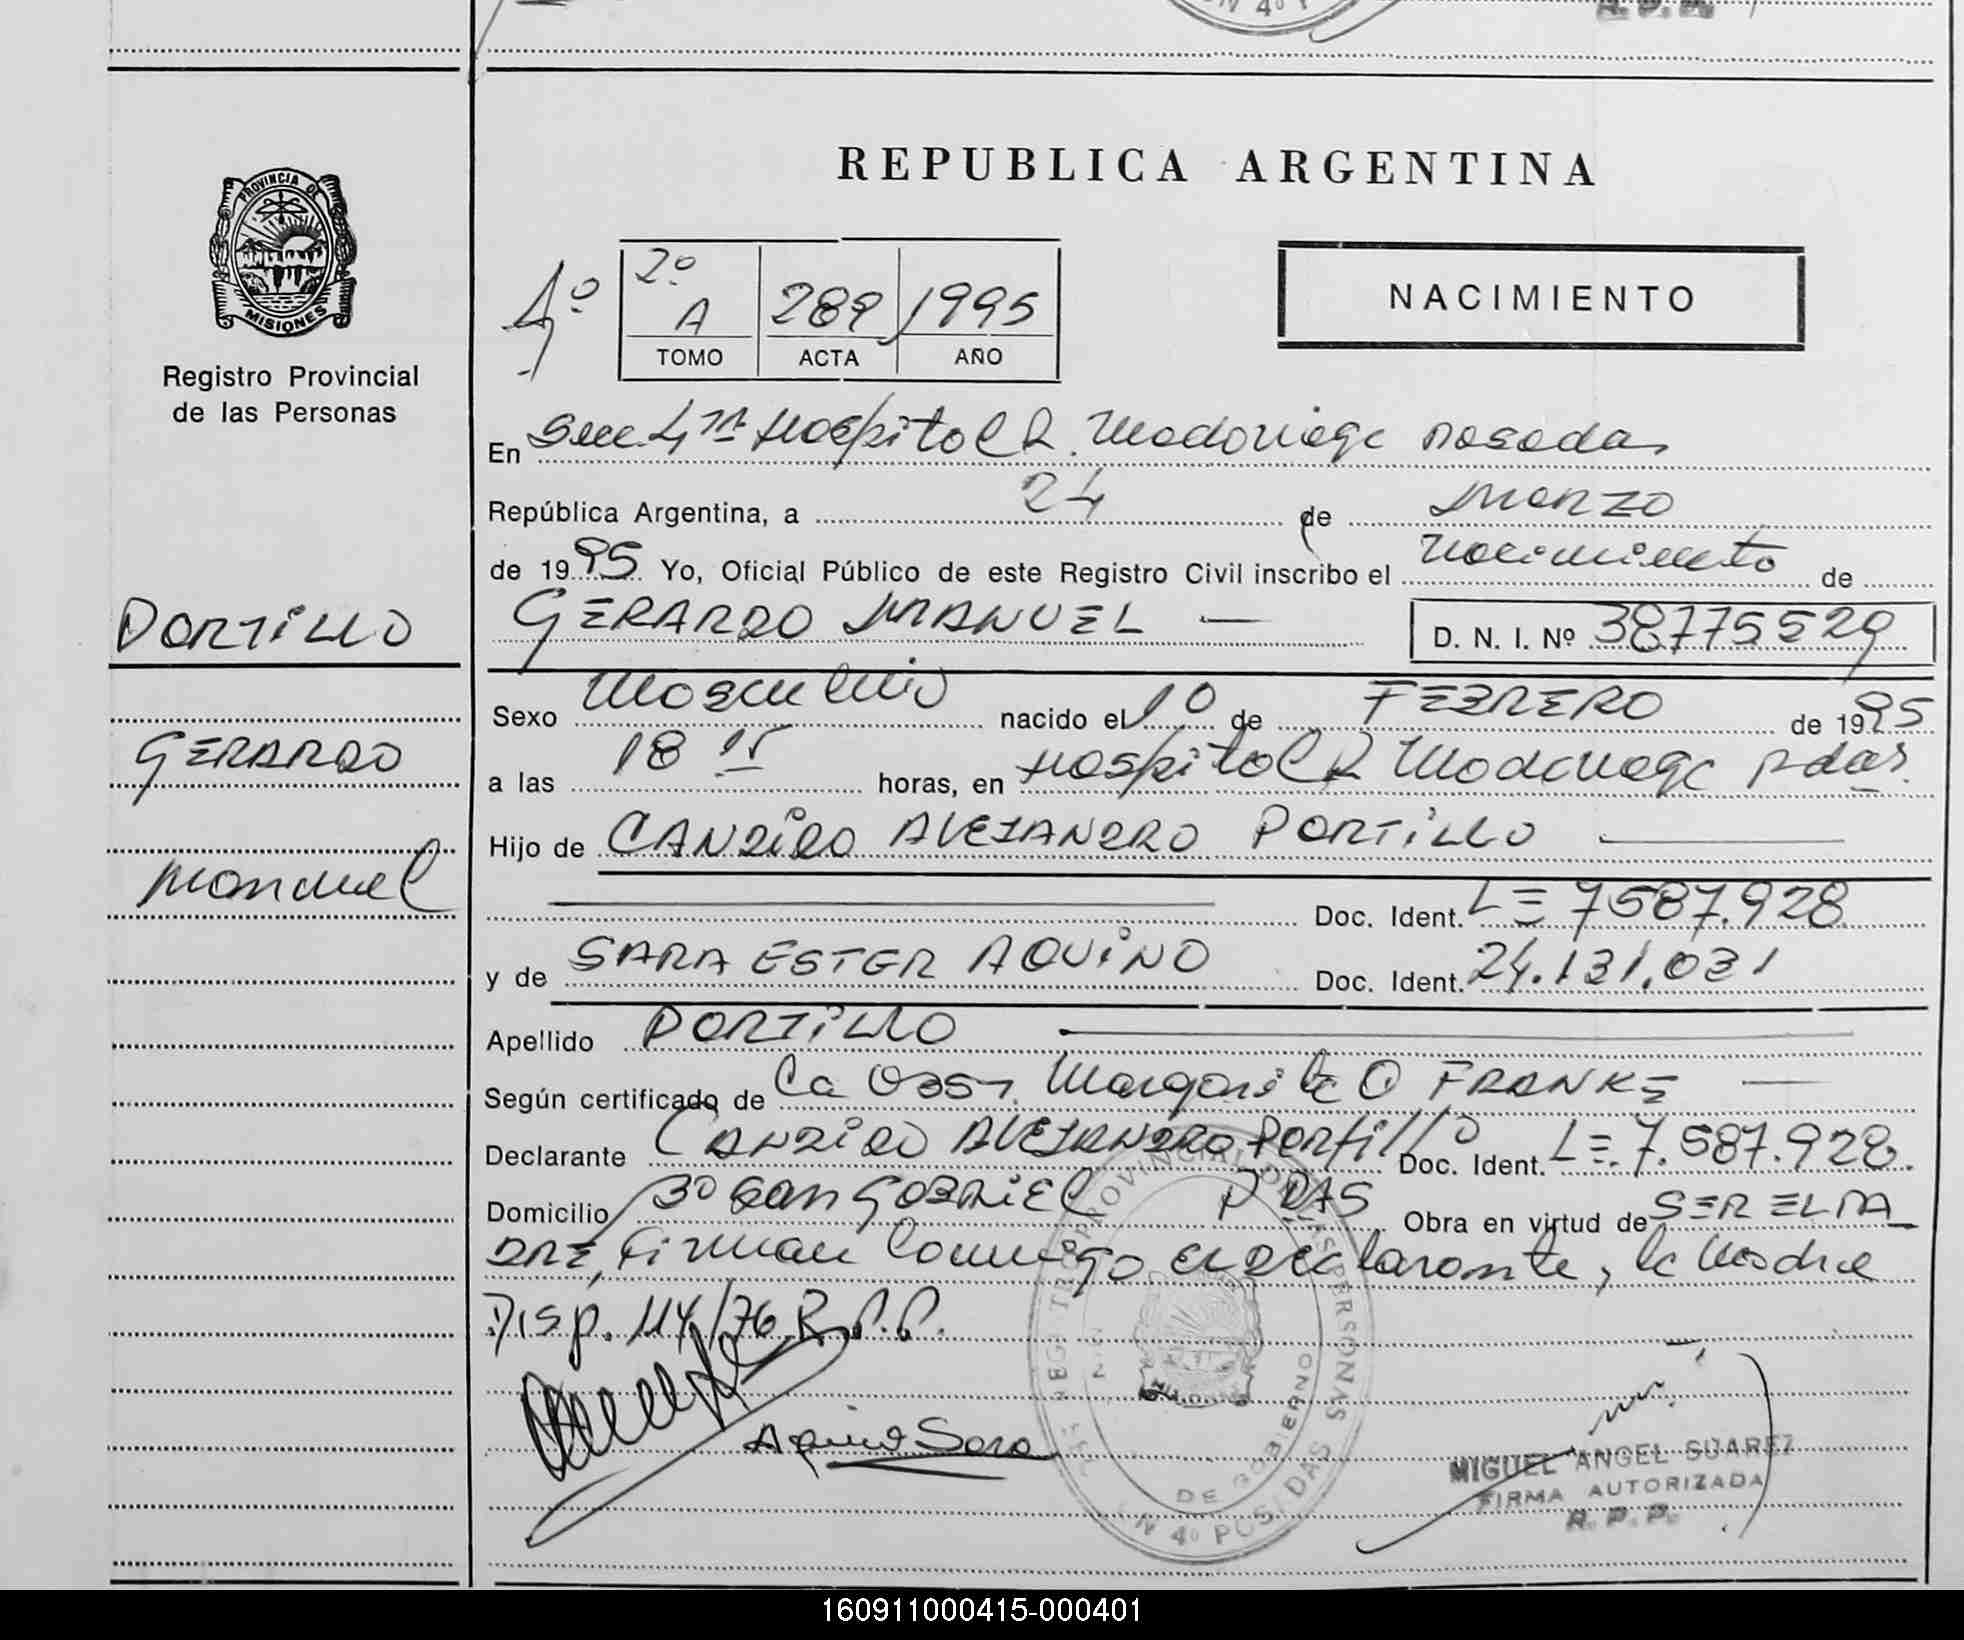 REPUBLICA ARGENTINA
PROVINCIA DE
MISIONES
Registro Provincial
de las Personas
4º
2º
A 289 1995
TOMO ACTA AÑO
NACIMIENTO
En Secc. 4ta Hospital R. Madariaga Posadas
República Argentina, a 24 de Marzo
de 1995 Yo, Oficial Público de este Registro Civil inscribo el Nacimiento de
PORTILLO
GERARDO MANUEL — D. N. I. Nº 38775529
Sexo Masculino nacido el 10 de FEBRERO de 1995
GERARDO
a las 18 15 horas, en Hospital R Madariaga Pdas.
Hijo de CANDIDO ALEJANDRO PORTILLO
Manuel
Doc. Ident. LE 7587.928
y de SARA ESTER AQUINO Doc. Ident. 24.131.031
Apellido PORTILLO
Según certificado de la Obst. Margarita O FRANKE —
Declarante CANDIDO ALEJANDRO Portillo Doc. Ident. LE. 7.587.928.
Domicilio Bº San GABRIEL PDAS Obra en virtud de SER EL PA
DRE, Firman Conmigo el declarante, la Madre
Disp. 114/76 R.P.P.
Aquino Sara
REGISTRO PROVINCIAL DE LAS PERSONAS
DE GOBIERNO
4º POSADAS
MIGUEL ANGEL SUAREZ
FIRMA AUTORIZADA
R. P. P.
160911000415-000401